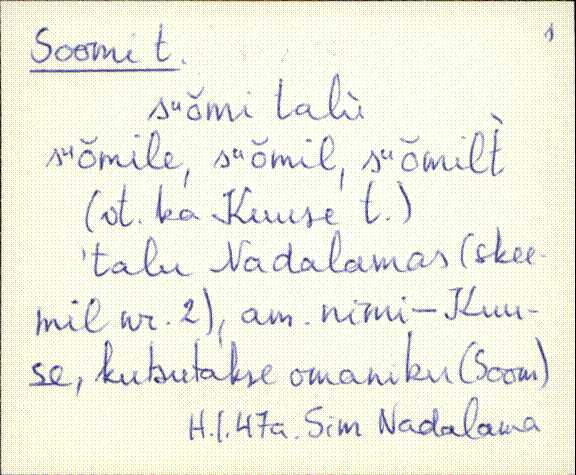 Soomi t.
sᵘŏmi talù
sᵘŏmile, sᵘŏmil, sᵘŏmilt̀
(vt. ka Kuuse t.)
'talu Nadalamas (skee-
mil nr. 2), am. nimi – Kuu-
se, kutsutakse omaniku (Soom)
H.I. 47a. Sim Nadalama